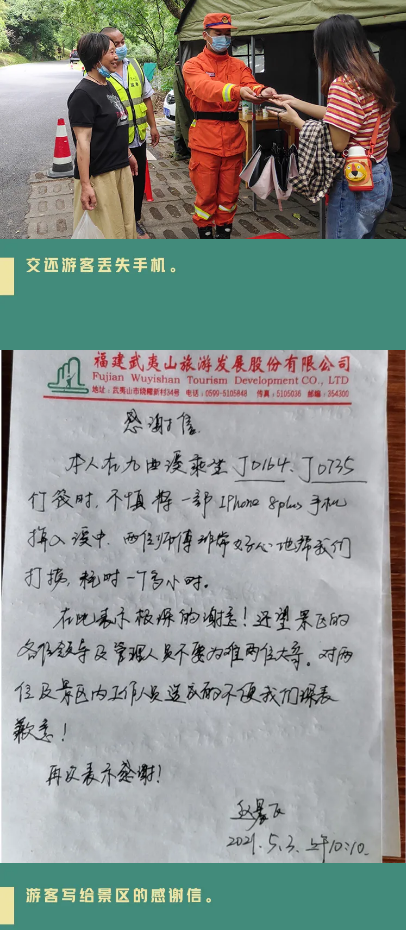 交还游客丢失手机。
福建武夷山旅游发展股份有限公司
Fujian Wuyishan Tourism Development CO., LTD
地址：武夷山市晓耀新村34号 电话：0599-5105848 传真：5105036 邮编：354300
感谢信
本人在九曲溪乘坐 J0164、J0735
们筏时，不慎将一部 IPhone 8plus 手机
掉入溪中，两位师傅非常好心地帮我们
打捞，耗时一个多小时。
在此表示极深的谢意！还望景区的
各位领导及管理人员不要为难两位大哥。对两
位及景区内工作人员造成的不便我们深表
歉意！
再次表示感谢！
2021.5.3. 上午10:10.
游客写给景区的感谢信。